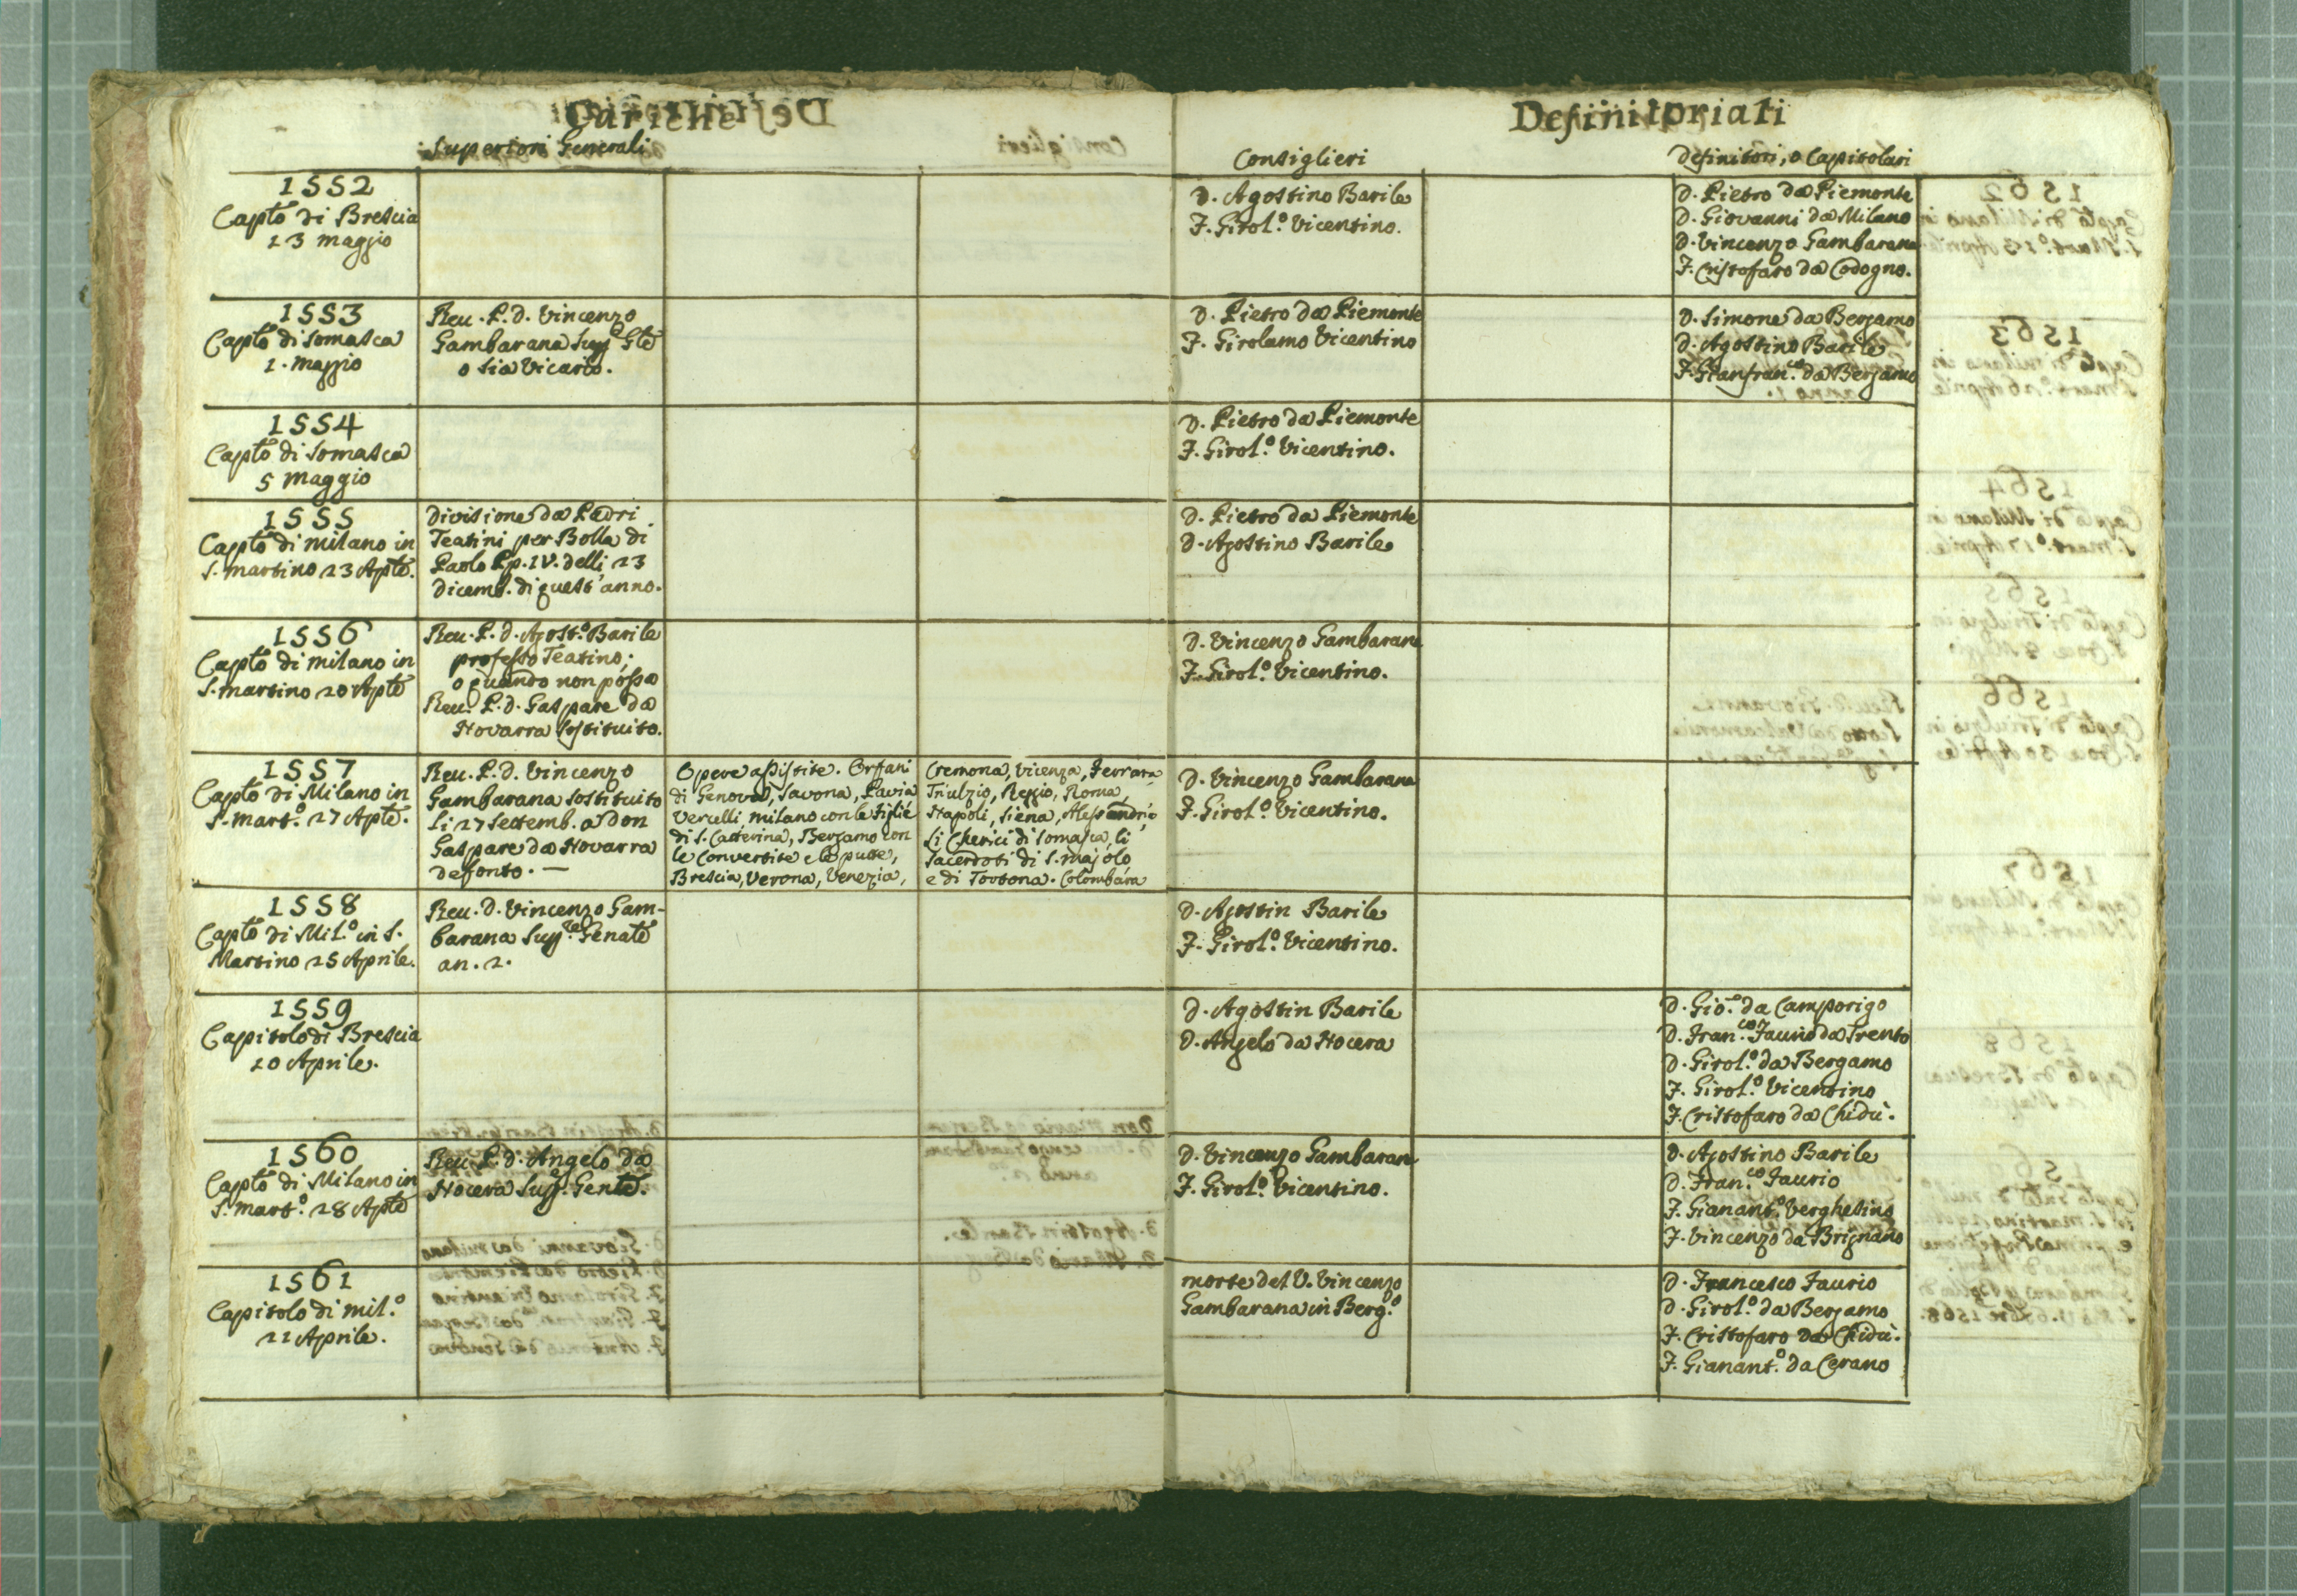 Cariche
Superiori Generali
1552
Capto di Brescia
13 maggio
1553
Capto di Somasca
1. Maggio
Reu. P. D. Vincenzo
Gambarana Supe Gle
o sia Vicario.
1554
Capto di Somasca
5 Maggio
1555
Capto di milano in
S. martino 23 Aple.
Divisione da Padri
Teatini per Bolla di
Paolo Pp. IV. delli 23
Dicemb. di quest'anno.
1556
Capto di milano in
S. martino 20 Aple
Reu. P. D. Agost.o Barile
professo Teatino;
o quando non possa
Reu. P. D. Gaspare da
Novarra sostituito.
1557
Capto di Milano in
S. mart.o 27 Aple.
Reu. P. D. Vincenzo
Gambarana sostituito
li 27 Settemb. a Don
Gaspare da Novarra
defonto. —
Opere assistite. Orfani
di Genova, Savona, Pavia
Vercelli, milano con le figlie
di S. Catterina, Bergamo con
le Convertite e le putte,
Brescia, Verona, Venezia,
Cremona, Vicenza, Ferrara
Triulzio, Reggio, Roma,
Napoli, Siena, Alessandria,
Li Cherici di Somasca, li
Sacerdoti di S. Majolo
e di Tortona. Colombara
1558
Capto di Mil.o in S.
Martino 25 Aprile.
Reu. D. Vincenzo Gam-
barana Sup.re Genale
an. 2.
1559
Capitolo di Brescia
20 Aprile.
1560
Capto di Milano in
S. mart.o 28 Aple
Reu. P. D. Angelo da
Nocera Supe. Genle.
1561
Capitolo di mil.o
22 Aprile.
Definitoriati
Consiglieri
Definitori, o Capitolari
D. Agostino Barile
F. Girol.o Vicentino.
D. Pietro da Piemonte
D. Giovanni da Milano
D. Vincenzo Gambarana
F. Cristofaro da Codogno.
D. Pietro da Piemonte
F. Girolamo Vicentino
D. Simone da Bergamo
D. Agostino Barile
F. Gianfran.co da Bergamo
D. Pietro da Piemonte
F. Girol.o Vicentino.
D. Pietro da Piemonte
D. Agostino Barile
D. Vincenzo Gambarana
F. Girol.o Vicentino.
D. Vincenzo Gambarana
F. Girol.o Vicentino.
D. Agostin Barile
F. Girol.o Vicentino.
D. Agostin Barile
D. Angelo da Nocera
D. Gio. da Camporigo
D. Fran.co Faurio da Trento
D. Girol.o da Bergamo
F. Girol.o Vicentino
F. Cristofaro da Chidù.
D. Vincenzo Gambarana
F. Girol.o Vicentino.
D. Agostino Barile
D. Fran.co Faurio
F. Gianant.o Verghetino
F. Vincenzo da Brignano
morte del V. Vincenzo
Gambarana in Berg.o
D. Francesco Faurio
D. Girol.o da Bergamo
F. Cristofaro da Chidù.
F. Gianant.o da Cerano